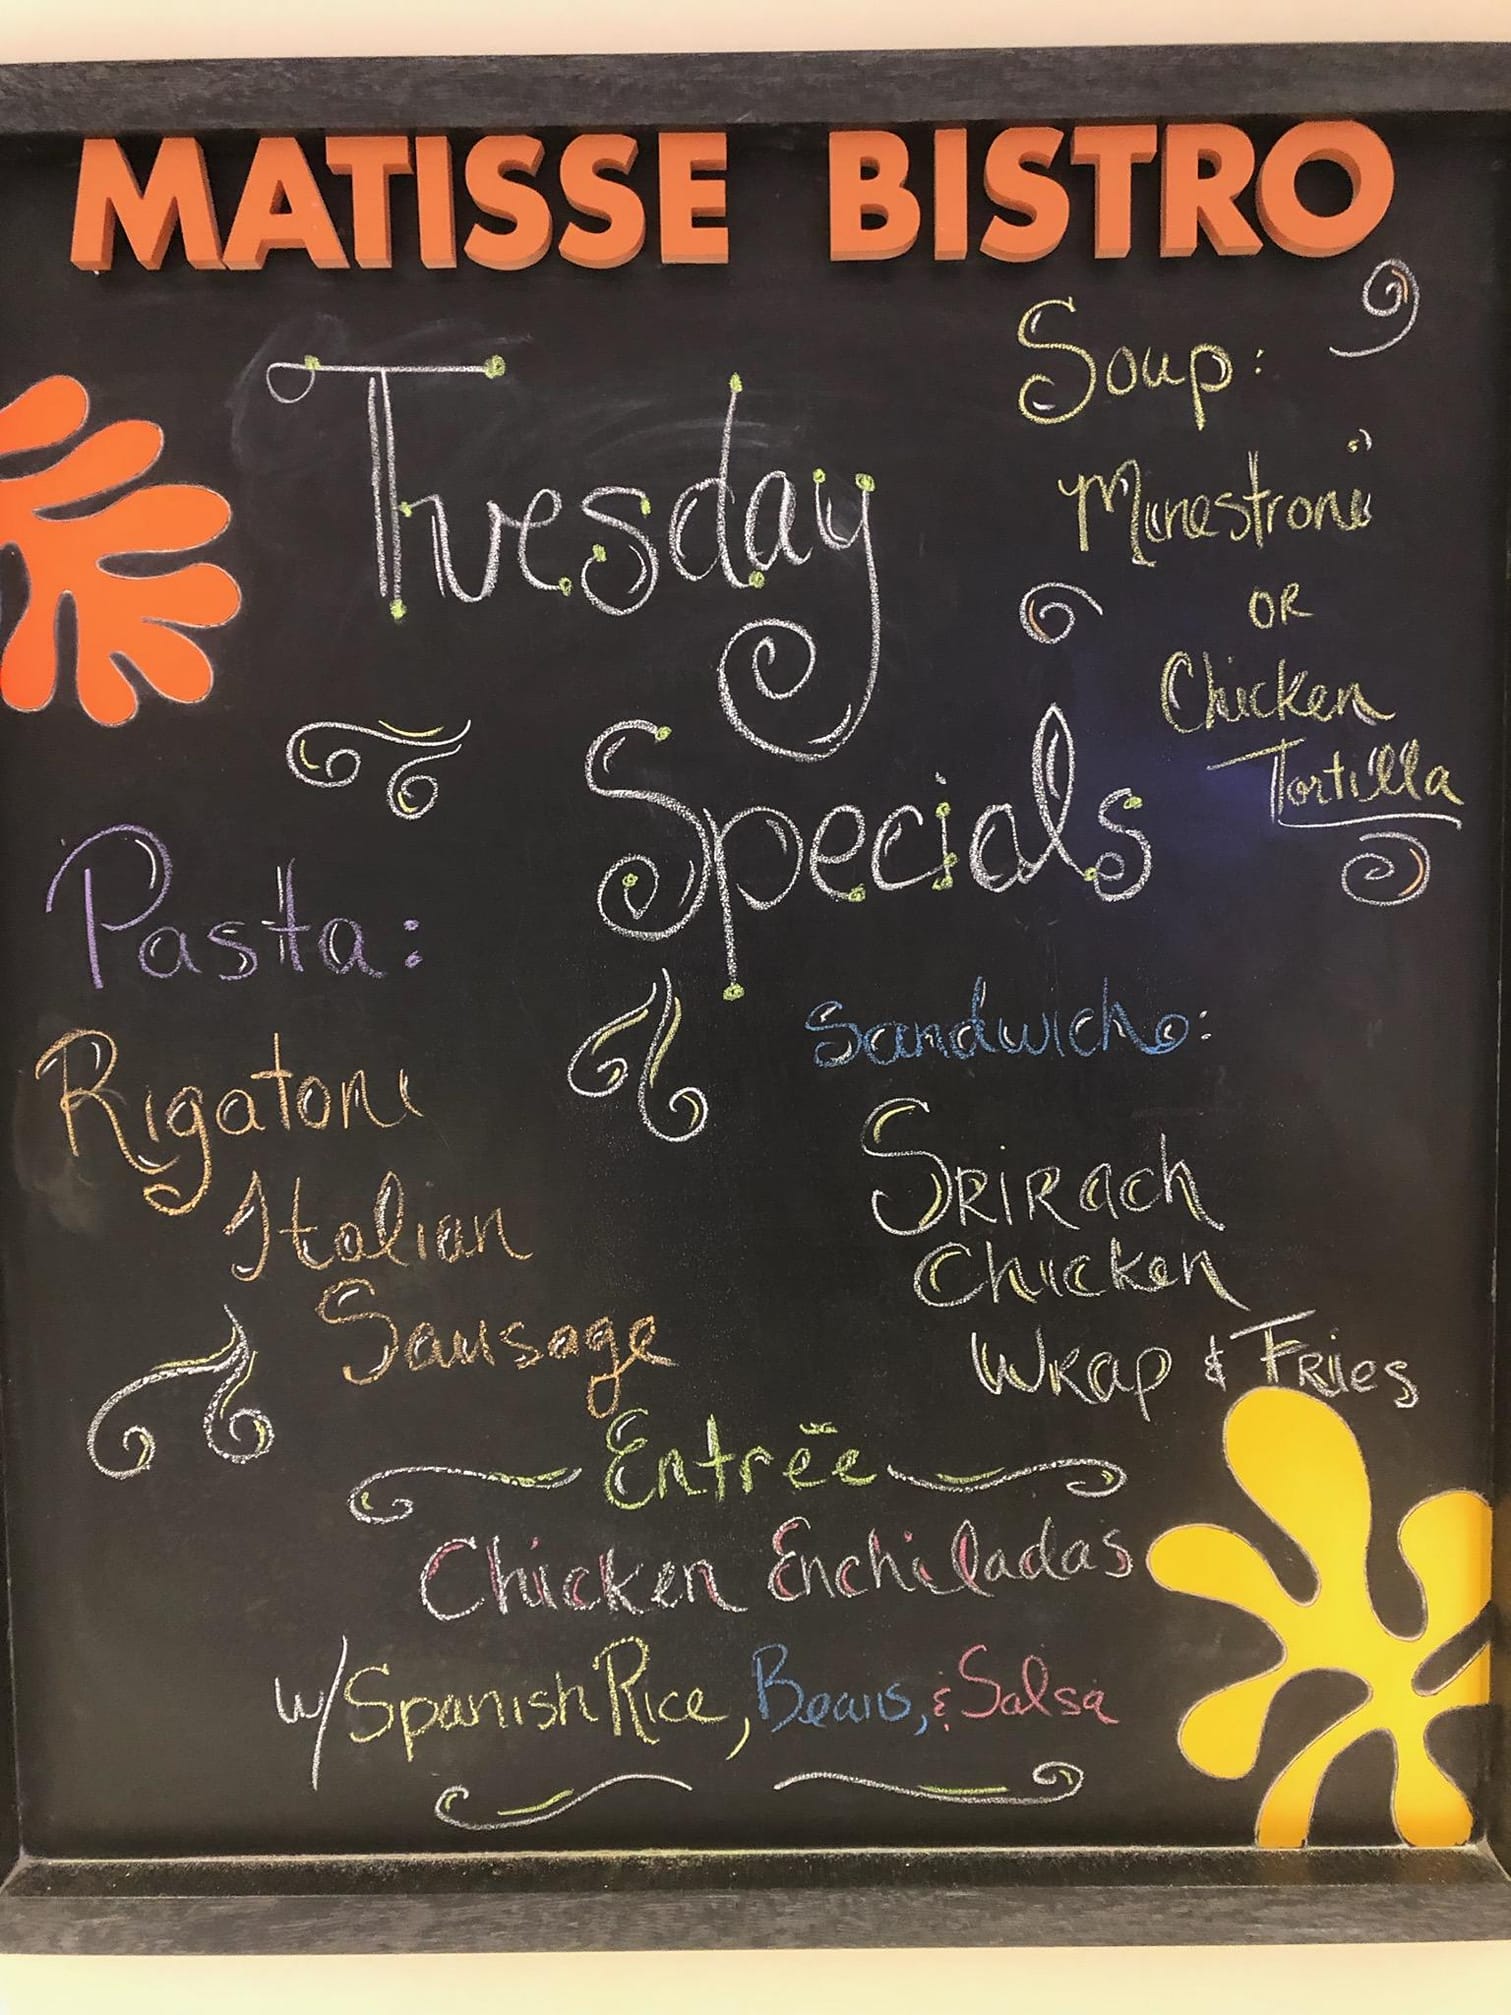 MATISSE BISTRO
Tuesday
Specials
Soup:
Minestroni
OR
Chicken
Tortilla
Pasta:
Rigatoni
Italian
Sausage
Sandwich:
SRIRach
Chicken
WRap & FRies
Entrée
Chicken Enchiladas
w/ Spanish Rice, Beans, & Salsa